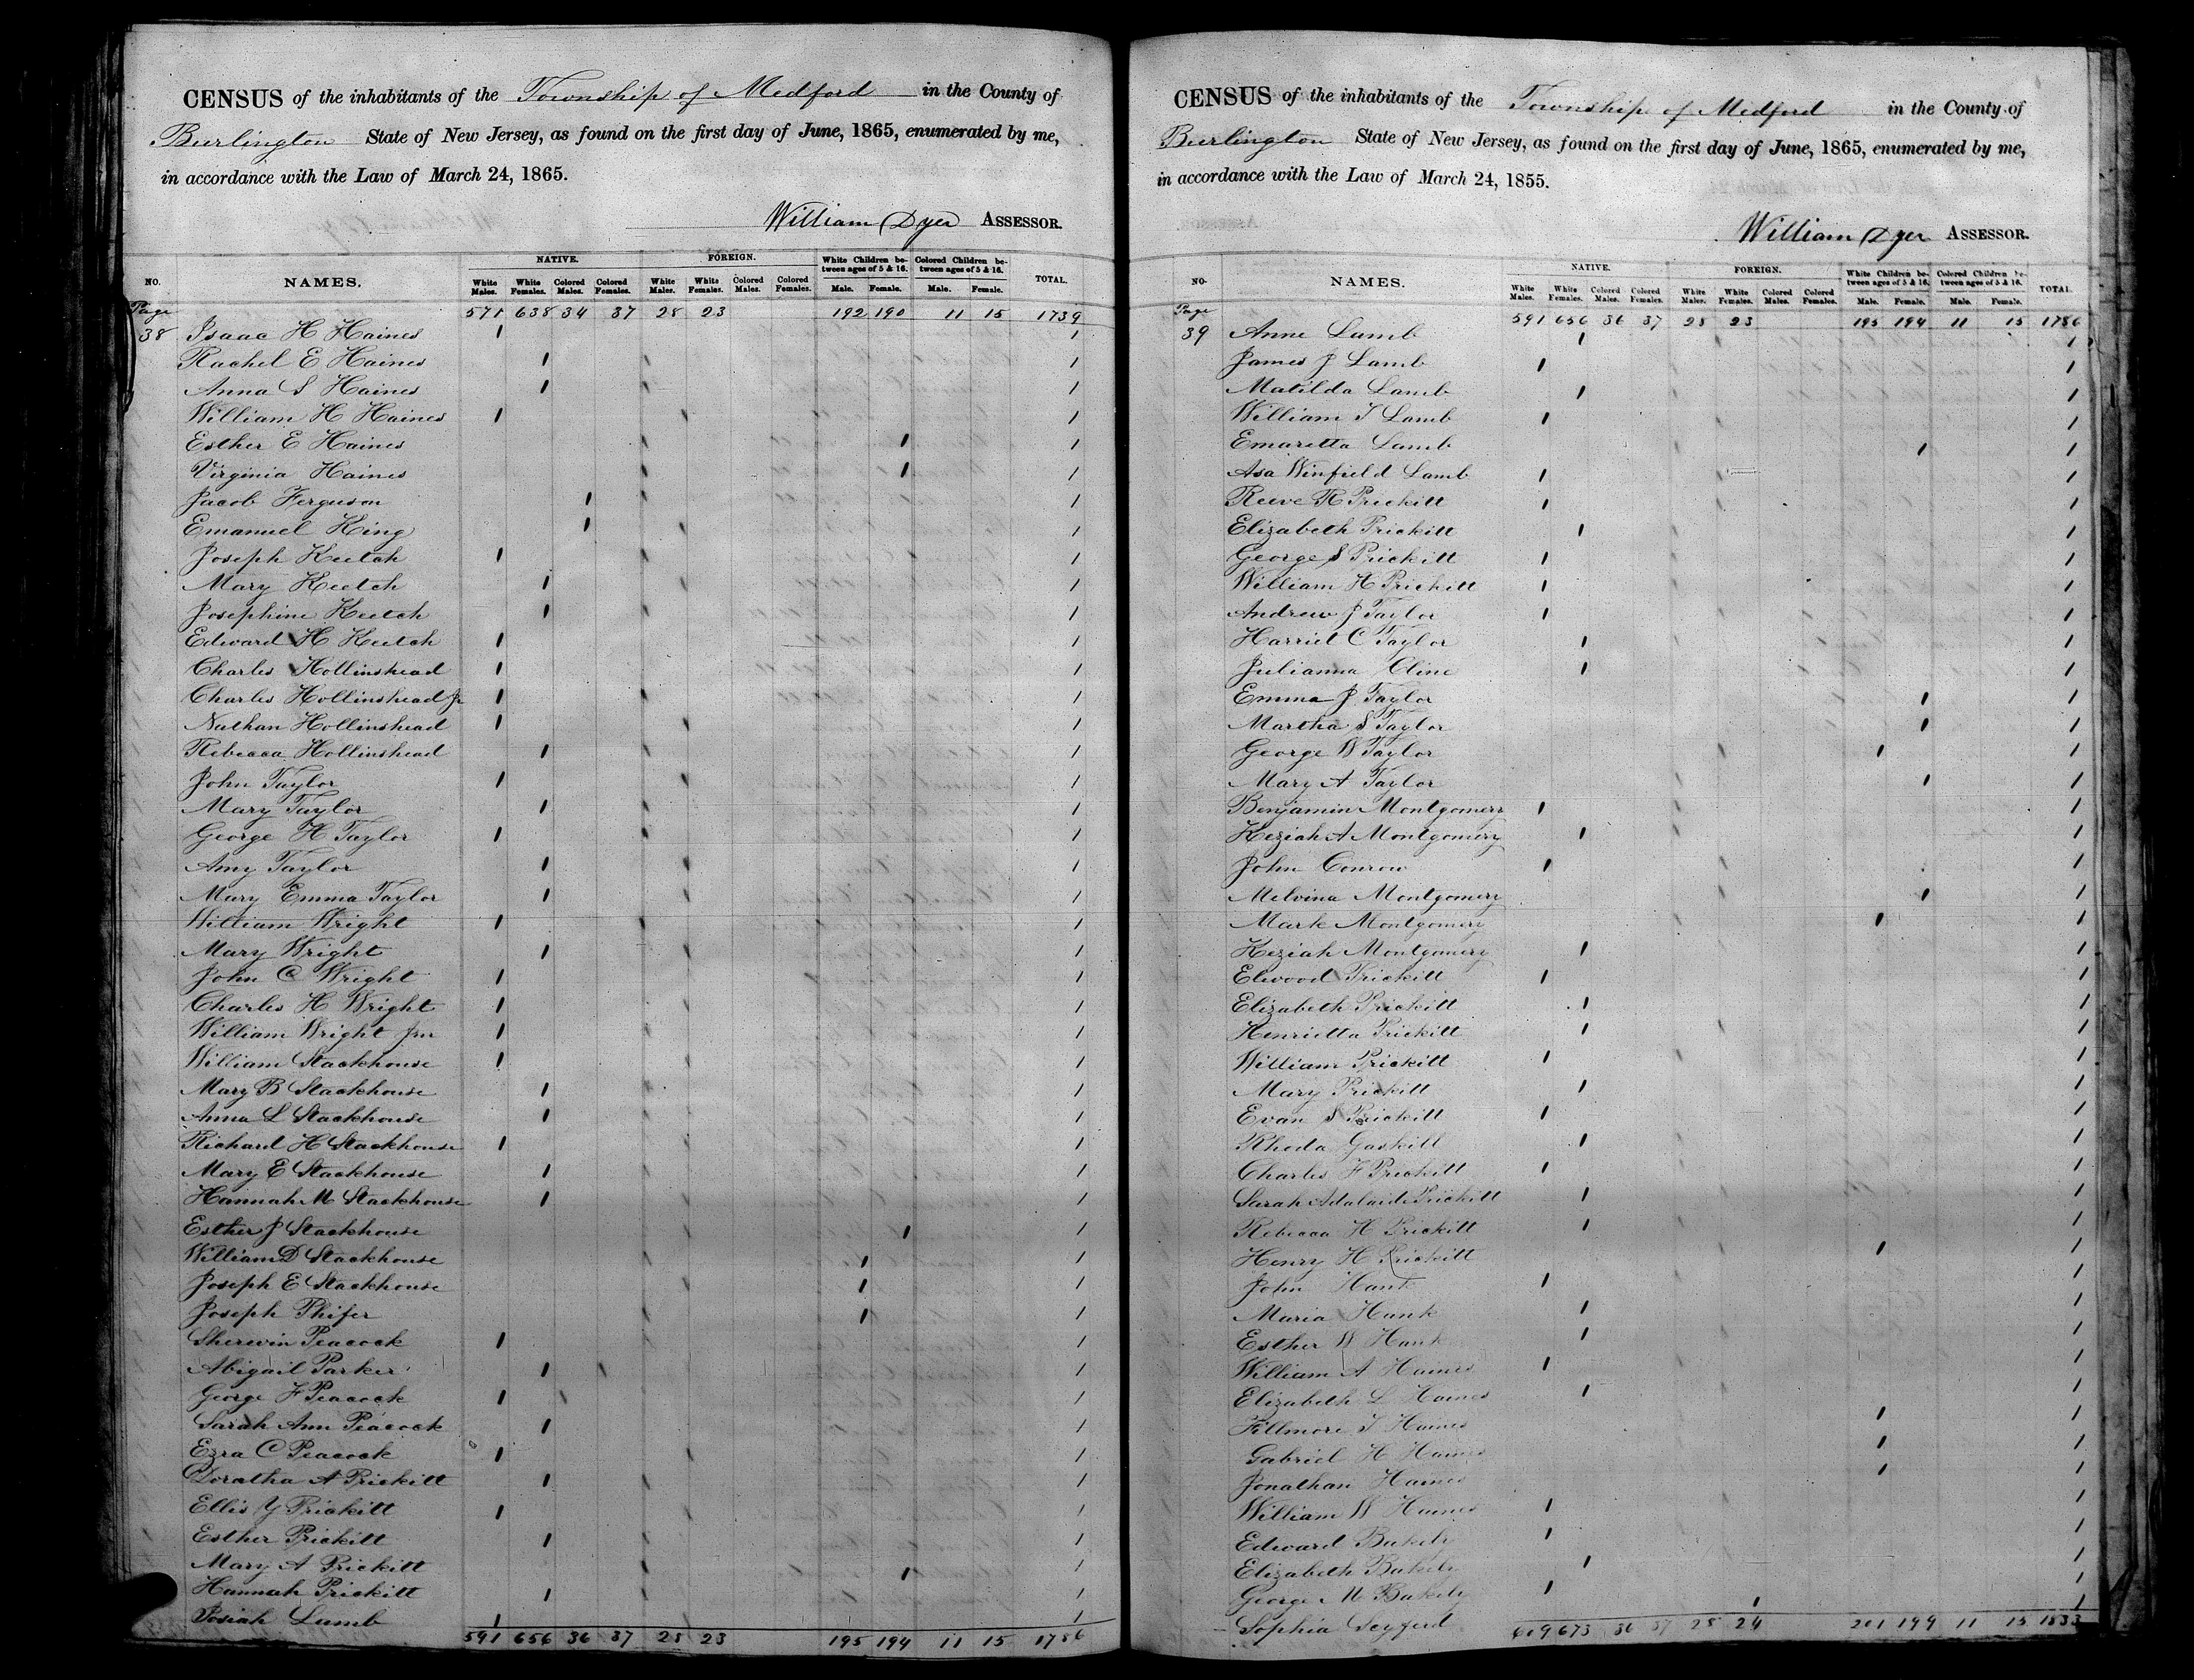 CENSUS of the inhabitants of the Township of Medford in the County of
Burlington State of New Jersey, as found on the first day of June, 1865, enumerated by me,
in accordance with the Law of March 24, 1865.
William Dyer ASSESSOR.
NO. NAMES. NATIVE. FOREIGN. White Children between ages of 5 & 16. Colored Children between ages of 5 & 16. TOTAL.
White Males. White Females. Colored Males. Colored Females. White Males. White Females. Colored Males. Colored Females. Male. Female. Male. Female.
Page 571 638 34 37 28 23 192 190 11 15 1739
38 Isaac H Haines 1 1
Rachel E Haines 1 1
Anna S Haines 1 1
William H Haines 1 1
Esther E Haines 1 1
Virginia Haines 1 1
Jacob Ferguson 1 1
Emanuel King 1 1
Joseph Keetch 1 1
Mary Keetch 1 1
Josephine Keetch 1 1
Edward H Keetch 1 1
Charles Hollinshead 1 1
Charles Hollinshead Jr 1 1
Nathan Hollinshead 1 1
Rebecca Hollinshead 1 1
John Taylor 1 1
Mary Taylor 1 1
George H Taylor 1 1
Amy Taylor 1 1
Mary Emma Taylor 1 1
William Wright 1 1
Mary Wright 1 1
John C Wright 1 1
Charles H Wright 1 1
William Wright Jnr 1 1
William Stackhouse 1 1
Mary B Stackhouse 1 1
Anna L Stackhouse 1 1
Richard H Stackhouse 1 1
Mary E Stackhouse 1 1
Hannah M Stackhouse 1 1
Esther J Stackhouse 1 1
William D Stackhouse 1 1
Joseph E Stackhouse 1 1
Joseph Phifer 1 1
Sherwin Peacock 1 1
Abigail Parker 1 1
George F Peacock 1 1
Sarah Ann Peacock 1 1
Ezra C Peacock 1 1
Doratha A Prickitt 1 1
Ellis Y Prickitt 1 1
Esther Prickitt 1 1
Mary A Prickitt 1 1
Hannah Prickitt 1 1
Josiah Lamb 1 1
591 656 36 37 28 23 195 194 11 15 1786
CENSUS of the inhabitants of the Township of Medford in the County of
Burlington State of New Jersey, as found on the first day of June, 1865, enumerated by me,
in accordance with the Law of March 24, 1855.
William Dyer ASSESSOR.
NO. NAMES. NATIVE. FOREIGN. White Children between ages of 5 & 16. Colored Children between ages of 5 & 16. TOTAL.
White Males. White Females. Colored Males. Colored Females. White Males. White Females. Colored Males. Colored Females. Male. Female. Male. Female.
Page 591 656 36 37 28 23 195 194 11 15 1786
39 Anne Lamb 1 1
James J Lamb 1 1
Matilda Lamb 1 1
William T Lamb 1 1
Emaretta Lamb 1 1
Asa Winfield Lamb 1 1
Reeve R Prickitt 1 1
Elizabeth Prickitt 1 1
George S Prickitt 1 1
William H Prickitt 1 1
Andrew J Taylor 1 1
Harriet C Taylor 1 1
Julianna Cline 1 1
Emma J Taylor 1 1
Martha S Taylor 1 1
George W Taylor 1 1
Mary A Taylor 1 1
Benjamin Montgomery 1 1
Keziah A Montgomery 1 1
John Conrow 1 1
Melvina Montgomery 1 1
Mark Montgomery 1 1
Keziah Montgomery 1 1
Elwood Prickitt 1 1
Elizabeth Prickitt 1 1
Henrietta Prickitt 1 1
William Prickitt 1 1
Mary Prickitt 1 1
Evan S Prickitt 1 1
Rhoda Gaskill 1 1
Charles F Prickitt 1 1
Sarah Adalaide Prickitt 1 1
Rebecca H Prickitt 1 1
Henry H Prickitt 1 1
John Hank 1 1
Maria Hank 1 1
Esther W Hank 1 1
William A Haines 1 1
Elizabeth L Haines 1 1
Fillmore T Haines 1 1
Gabriel H Haines 1 1
Jonathan Haines 1 1
William W Haines 1 1
Edward Bakely 1 1
Elizabeth Bakely 1 1
George M Bakely 1 1
Sophia 1 1
609 673 36 37 28 24 201 199 11 15 1833